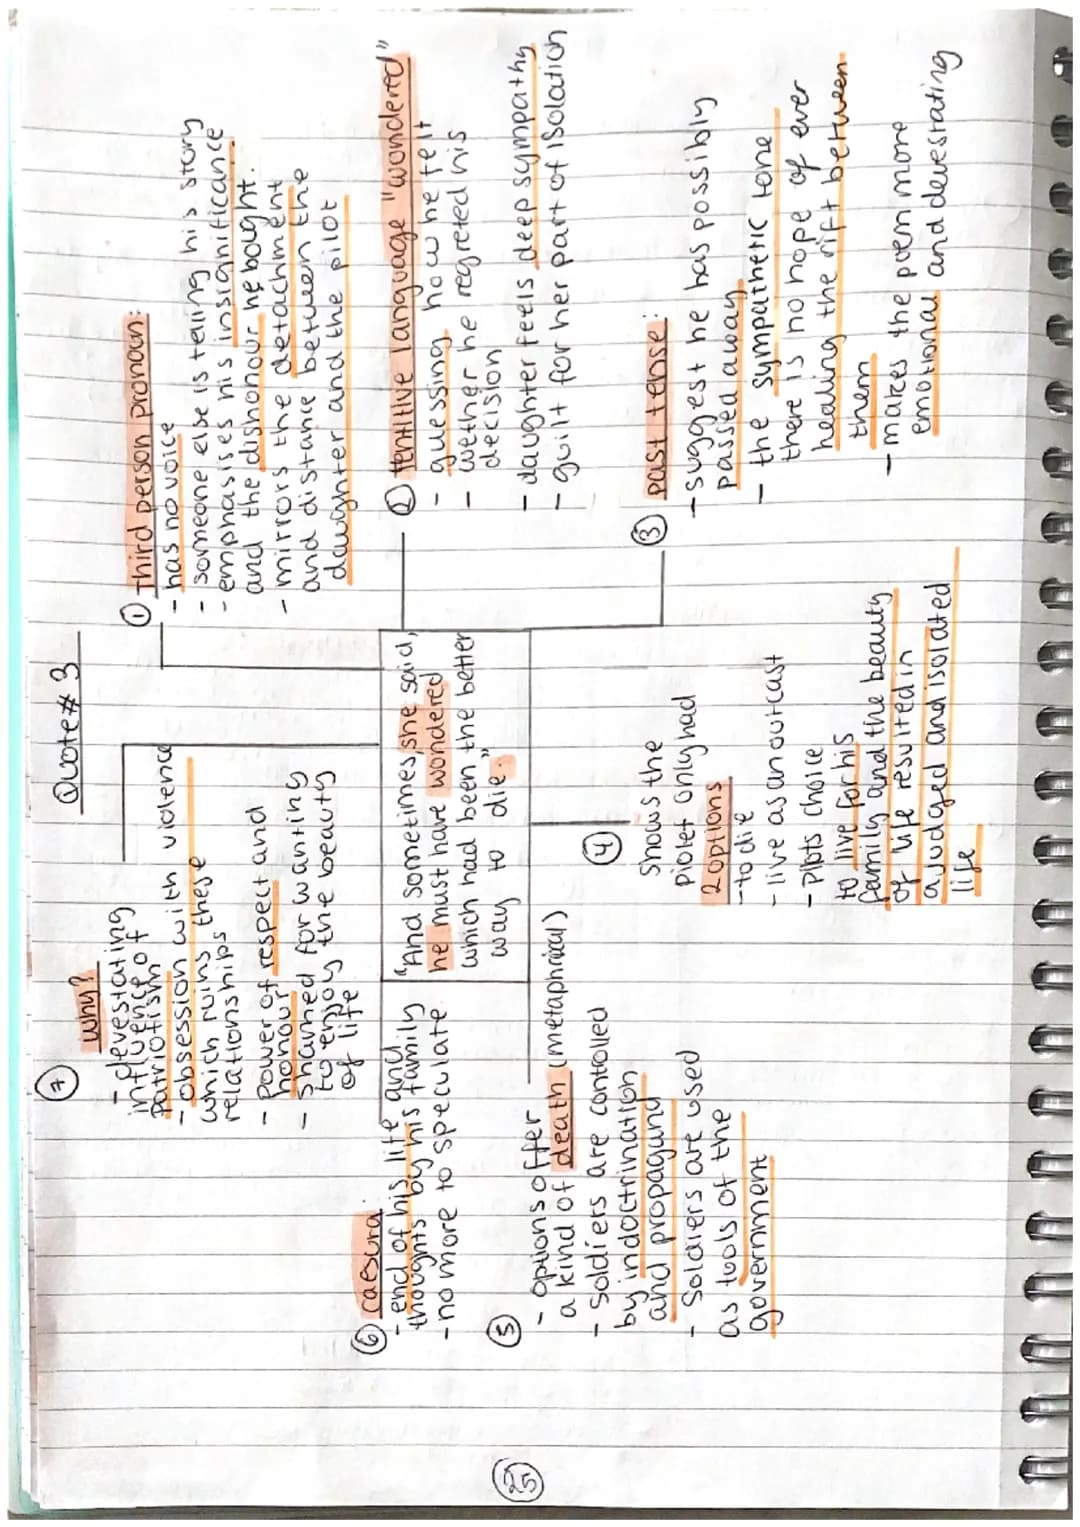 Quote # 3
① Third person pronoun:
- has no voice
- someone else is telling his story
- emphasises his insignificance
and the dishonour he bought.
- mirrors the detachment
and distance between the
daughter and the pilot
② tentitive language "wondered"
- guessing how he felt
- wether he regreted his
decision
- daughter feels deep sympathy
- guilt for her part of isolation
③ past tense:
- suggest he has possibly
passed away
- the sympathetic tone
there is no hope of ever
healing the rift between
them
- makes the poem more
emotional and devestrating
"And sometimes, she said,
he must have wondered
which had been the better
way to die."
④
Shows the
piolet only had
2 options
- to die
- live as an outcast
- Pilots choice
to live for his
family and the beauty
of life resulted in
a judged and isolated
life
⑤
- options offer
a kind of death (metaphrical)
- soldiers are controlled
by indoctrination
and propagand
- Soldiers are used
as tools of the
government
⑥ caesura
- end of his life and
thoughts by his family
- no more to speculate
⑦ why?
- devestating
influence of
patriotism
- obsession with violence
which ruins these
relationships
- Power of respect and
honour
- shamed for wanting
to enjoy the beauty
of life
25